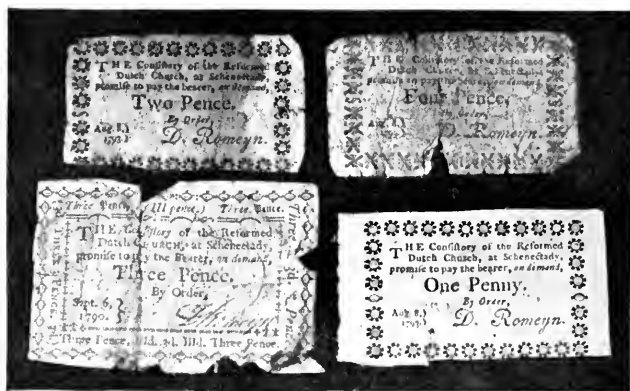 THE Consistory of the Reformed
Dutch Church, at Schenectady,
promise to pay the bearer, on demand,
Two Pence.
By Order,
Aug. 8,
1793.
D. Romeyn.
THE Consistory of the Reformed
Dutch Church, at Schenectady
promise to pay the bearer, on demand,
Four Pence.
By Order,
Aug. 8,
D. Romeyn.
Three Pence. (III pence.) Three Pence.
THE Consistory of the Reformed
Dutch CHURCH, at Schenectady,
promise to pay the Bearer, on demand,
Three Pence.
By Order,
Sept. 6,
1790.
Three Pence, IIId. 3d. IIId. Three Pence.
THE Consistory of the Reformed
Dutch Church, at Schenectady,
promise to pay the bearer, on demand,
One Penny.
By Order,
Aug. 8,
1793.
D. Romeyn.